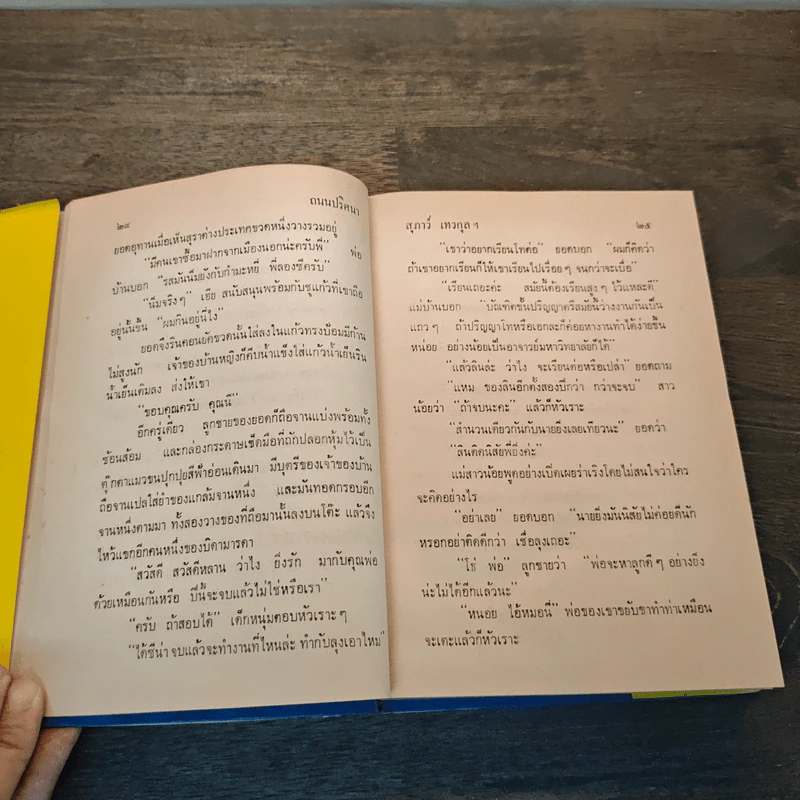 ๒๔ ถนนปริศนา
ยอดอุทานเมื่อเห็นสุราต่างประเทศขวดหนึ่งวางรวมอยู่
“มีคนเขาซื้อมาฝากจากเมืองนอกน่ะครับพี่” พ่อ
บ้านบอก “รสมันนิ่มยังกับกำมะหยี่ พี่ลองซีครับ”
“นิ่มจริงๆ” เฮีย สนับสนุนพร้อมกับชูแก้วที่เขาถือ
อยู่นั้นขึ้น “ผมกินอยู่นี่ไง”
ยอดจึงรินคอนยัคขวดนั้นใส่ลงในแก้วทรงป้อมมีก้าน
ไม่สูงนัก เจ้าของบ้านหญิงก็คีบน้ำแข็งใส่แก้วน้ำเย็นริน
น้ำเย็นเติมลง ส่งให้เขา
“ขอบคุณครับ คุณนี”
อีกครู่เดียว ลูกชายของยอดก็ถือจานแบ่งพร้อมทั้ง
ช้อนส้อม และกล่องกระดาษเช็ดมือที่ถักปลอกหุ้มไว้เป็น
ตุ๊กตาแมวขนปุกปุยสีฟ้าอ่อนเดินมา มีบุตรีของเจ้าของบ้าน
ถือจานเปลใส่ยำของแกล้มจานหนึ่ง และมันทอดกรอบอีก
จานหนึ่งตามมา ทั้งสองวางของที่ถือมานั้นลงบนโต๊ะ แล้วจึง
ไหว้แขกอีกคนหนึ่งของบิดามารดา
“สวัสดี สวัสดีหลาน ว่าไง ยิ่งรัก มากับคุณพ่อ
ด้วยเหมือนกันหรือ ปีนี้จะจบแล้วไม่ใช่หรือเรา”
“ครับ ถ้าสอบได้” เด็กหนุ่มตอบหัวเราะๆ
“ได้ซีน่า จบแล้วจะทำงานที่ไหนล่ะ ทำกับลุงเอาไหม”
สุภาว์ เทวกุลฯ ๒๕
“เขาว่าอยากเรียนโทต่อ” ยอดบอก “ผมก็คิดว่า
ถ้าเขาอยากเรียนก็ให้เขาเรียนไปเรื่อยๆ จนกว่าจะเบื่อ”
“เรียนเถอะค่ะ สมัยนี้ต้องเรียนสูงๆ ไว้แหละดี”
แม่บ้านบอก “บัณฑิตชั้นปริญญาตรีสมัยนี้ว่างงานกันเป็น
แถวๆ ถ้าปริญญาโทหรือเอกละก็ค่อยหางานทำได้ง่ายขึ้น
หน่อย อย่างน้อยเป็นอาจารย์มหาวิทยาลัยก็ได้”
“แล้วลินล่ะ ว่าไง จะเรียนต่อหรือเปล่า” ยอดถาม
“แหม ของลินอีกตั้งสองปีกว่า กว่าจะจบ” สาว
น้อยว่า “ถ้าจบนะคะ” แล้วก็หัวเราะ
“สำนวนเดียวกันกับนายยิ่งเลยเทียวนะ” ยอดว่า
“ลินติดนิสัยพี่ยิ่งค่ะ”
แม่สาวน้อยพูดอย่างเปิดเผยร่าเริงโดยไม่สนใจว่าใคร
จะคิดอย่างไร
“อย่าเลย” ยอดบอก “นายยิ่งมันนิสัยไม่ค่อยดีนัก
หรอกอย่าติดดีกว่า เชื่อลุงเถอะ”
“โธ่ พ่อ” ลูกชายว่า “พ่อจะหาลูกดีๆ อย่างยิ่ง
น่ะไม่ได้อีกแล้วนะ”
“หนอย ไอ้หมอนี่” พ่อของเขาขยับขาทำท่าเหมือน
จะเตะแล้วก็หัวเราะ